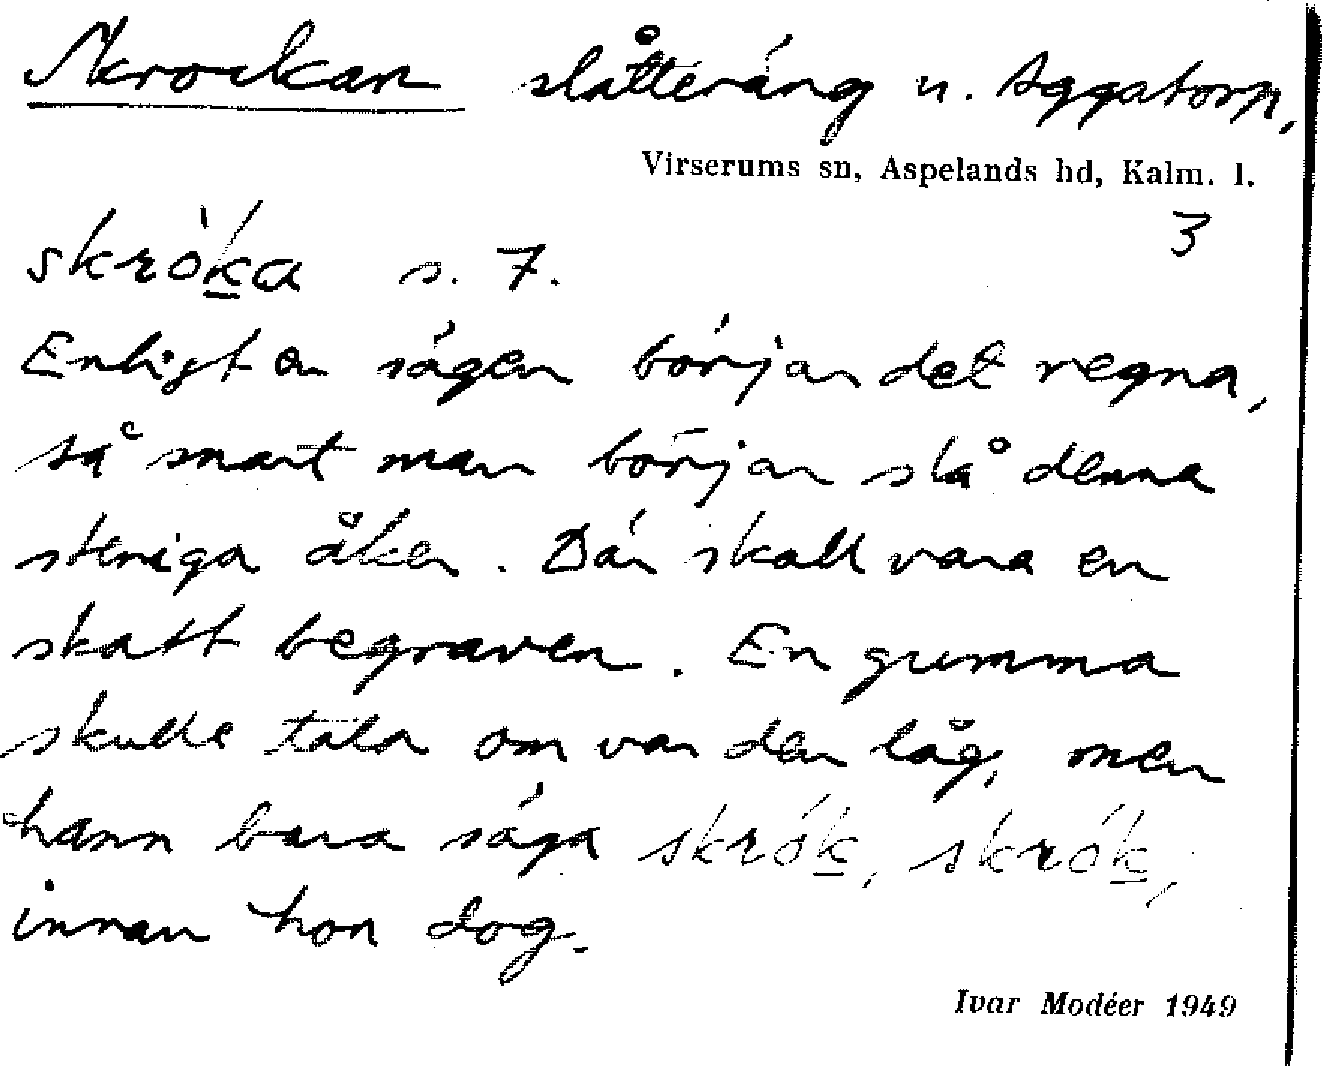 Skrockan slåtteräng u. Aggatorp,
Virserums sn, Aspelands hd, Kalm. l.
3
skrò́ḵa s. 7.
Enligt en sägen börjar det regna,
så snart man börjar slå denna
steniga åker. Där skall vara en
skatt begraven. En gumma
skulle tala om var den låg, men
hann bara säga skróḵ, skróḵ,
innan hon dog.
Ivar Modéer 1949